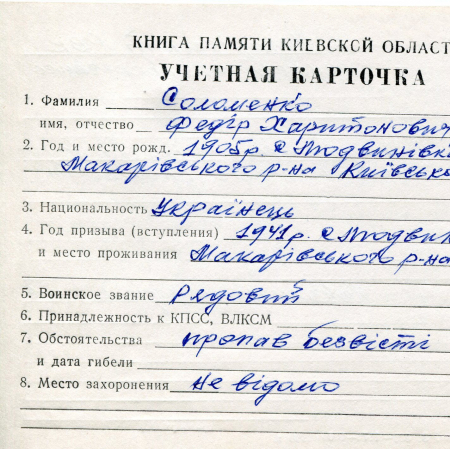 КНИГА ПАМЯТИ КИЕВСКОЙ ОБЛАСТ
УЧЕТНАЯ КАРТОЧКА
1. Фамилия Соломенко
имя, отчество Федір Харитонович
2. Год и место рожд. 1905р. с. Людвинівк
Макарівського р-на Київсько
3. Национальность Українець
4. Год призыва (вступления) 1941р. с. Людвин
и место проживания Макарівського р-на
5. Воинское звание рядовий
6. Принадлежность к КПСС, ВЛКСМ
7. Обстоятельства пропав безвісті
и дата гибели
8. Место захоронения не відомо